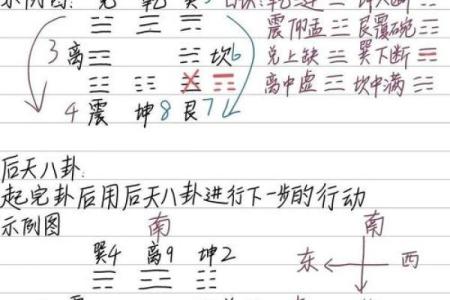 示例图:
震仰盂☳ 艮覆碗☶
3 离☲ ☵坎6
兑上缺☱ 巽下断☴
离中虚☲ 坎中满☵
4震 坤8 艮7
后天八卦:
起完卦后用后天八卦进行下一步的行动
示例图 南 南
巽4 离9 坤2 东 西
☴ ☲ ☷